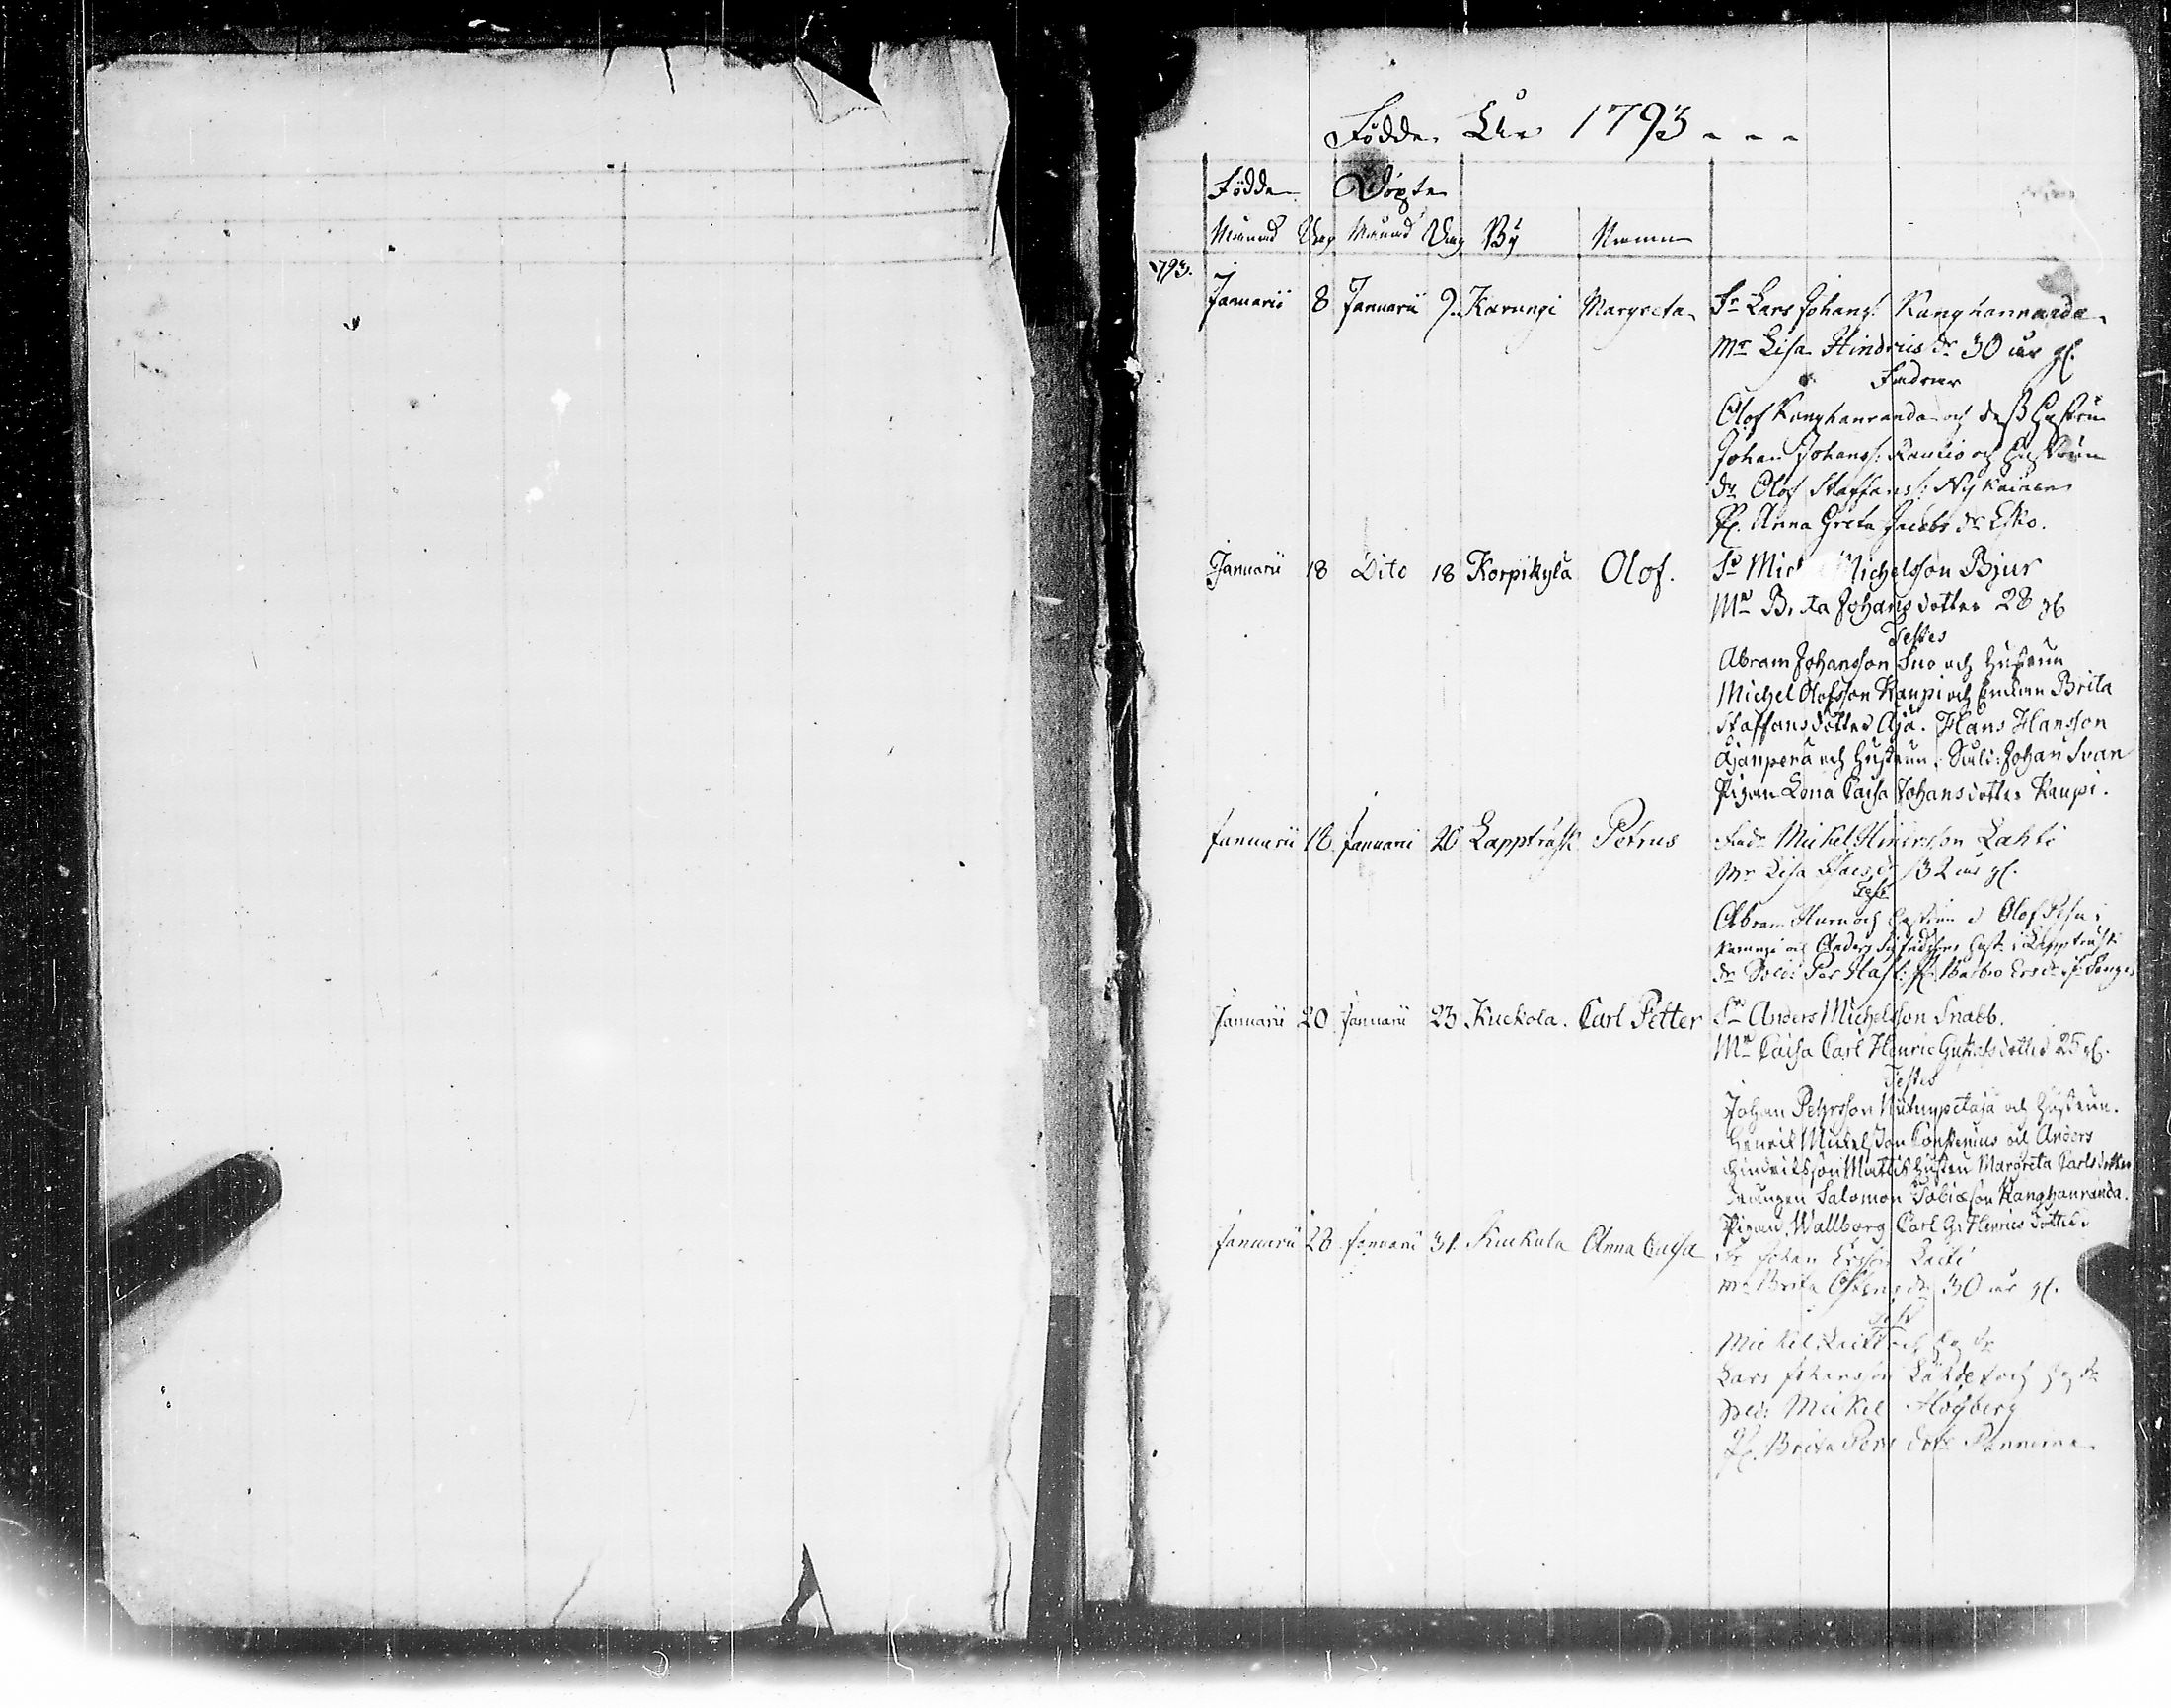 Födde År 1793
Födde Döpte
Månad Dag Månad Dag By Namn
1793.
Januarii 8 Januarii 9. Karungi Margreta Fr Lars Johans: Kanghanranda
Mr Lisa Hindricsdr 30 år gl.
Faddrar
Olof Kanghanranda och dess Hustru
Johan Johans: Rautio och Hustrun
dr. Olof Staffans: Nykainen
P. Anna Greta Jacobs dr Esko.
Januarii 18 Dito 18 Korpikylä Olof. Fr Mic Michelsson Bjur
Mr Brita Johansdotter 28 gl
Testes
Abram Johansson Suo och Hustrun
Michel Olofsson Kaupi och Enckan Brita
Staffansdotter Äjä. Hans Hansson
Äjänperä och Hustrun. Sold: Johan Svan
Pigan Lena Caisa Johansdotter Kaupi.
Januarii 18 Januarii 20 Lappträsk Petrus Fadr Mickel Hinersson Lahti
Mr Lisa Isacsdr 32 år gl.
Test
Abram och Hustrun Olof
Karungi och Anders Hust. i Lappträsk
dr Sold: Per P. Barbro Ersdr
Januarii 20 Januarii 23 Kuckola. Carl Petter Fr Anders Michelsson Snabb.
Mr Caisa Carl Henric Gustafsdotter 25 gl.
Testes
Johan Pehrsson och Hustrun.
Henrik Mickelsson och Anders
Hindriksson Hustru Margreta Carlsdotter
Drängen Salomon Tobiæson Kanghanranda.
Pigan. Wallborg Carl G. Henrics dotter
Januarii 28 Januarii 31. Kuckula Anna Caisa Fr Johan Ersson Laiti
Mr Brita dr 30 år gl.
Test
Mickel Laiti och
Lars Johansson och
Sold: Mickel Högberg
P. Brita Pers dotr